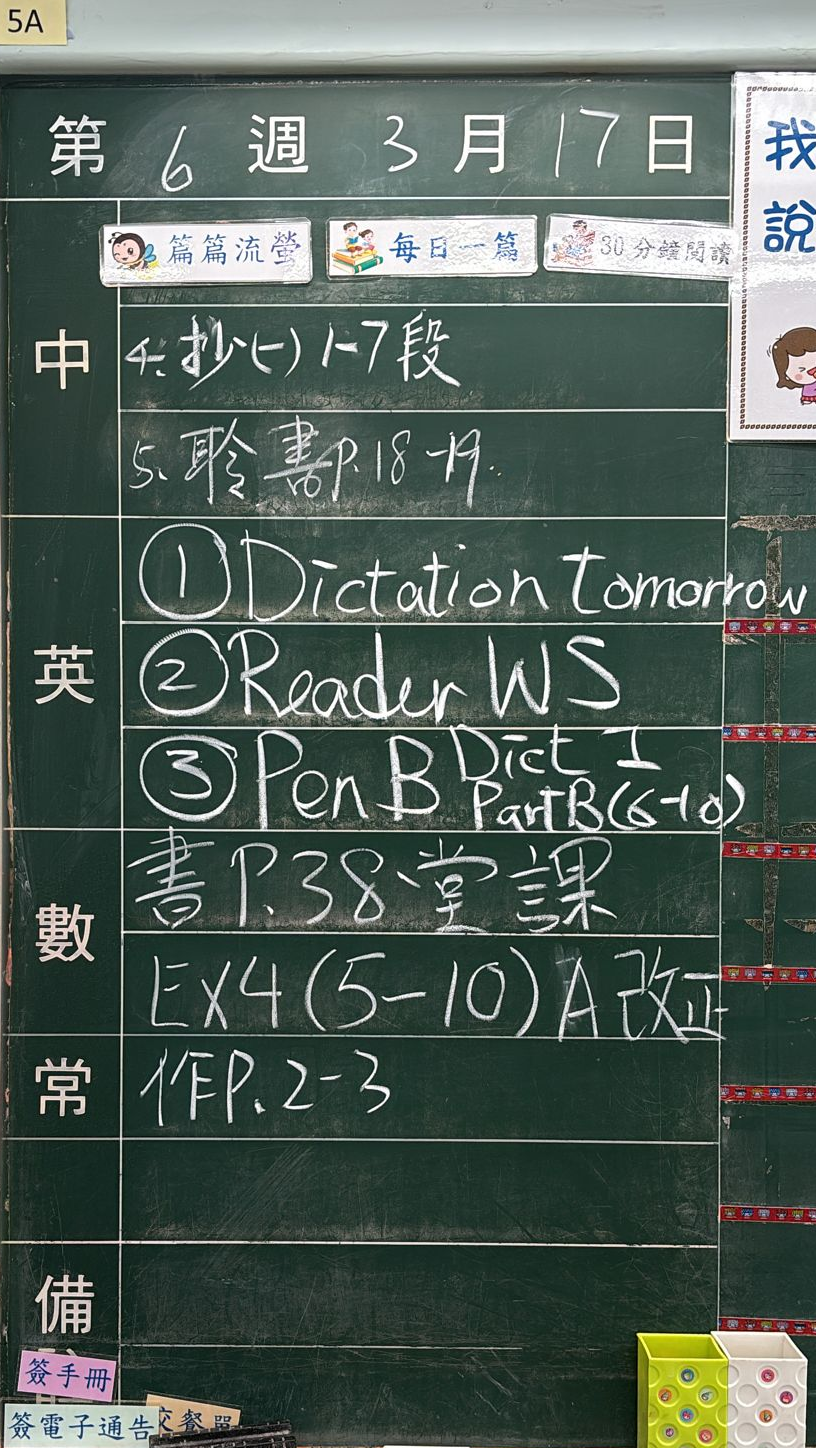 5A
第 6 週 3 月 17 日
我
說
篇篇流螢 每日一篇 30分鐘閱讀
中
4. 抄(一) 1-7段
5. 聆書P.18-19.
英
① Dictation tomorrow
② Reader WS
③ Pen B Dict 1
Part B (6-10)
數
書P.38、堂課
EX4 (5-10) A 改正
常
作P.2-3
備
簽手冊
簽電子通告
交餐單